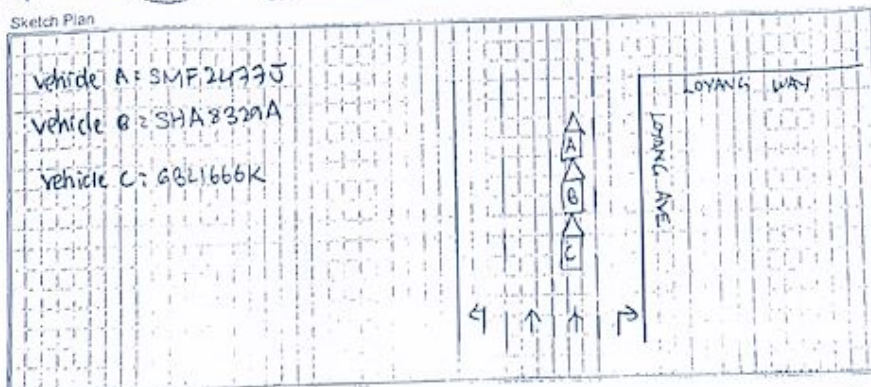 Sketch Plan
Vehicle A: SMF2477J
Vehicle B: SHA8329A
Vehicle C: GBL1666K
LOYANG WAY
LOYANG AVE
A
B
C